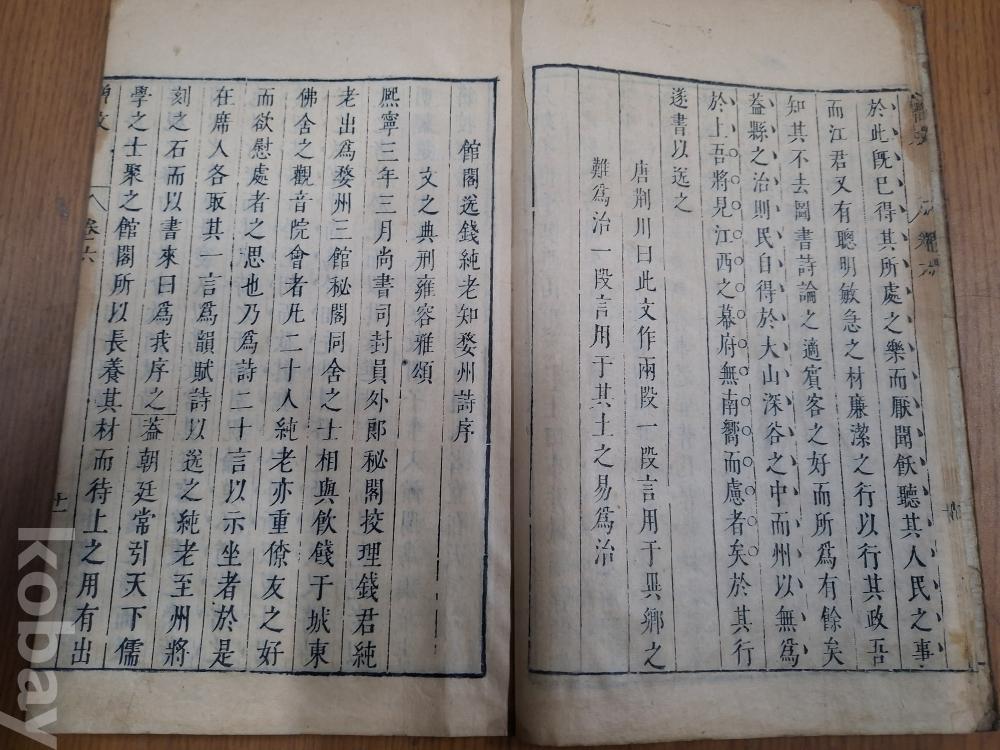 於此既已得其所處之樂而厭聞飫聽其人民之事
而江君又有聰明敏急之材廉潔之行以行其政吾
知其不去圖書詩論之適賓客之好而所爲有餘矣
葢縣之治則民自得於大山深谷之中而州以無爲
於上吾將見江西之幕府無南嚮而慮者矣於其行
遂書以送之
唐荆川曰此文作兩段一段言用于異鄉之
難爲治一段言用于其土之易爲治
館閣送錢純老知婺州詩序
文之典刑雍容雅頌
熙寧三年三月尚書司封員外郎秘閣挍理錢君純
老出爲婺州三館秘閣同舍之士相與飲餞于城東
佛舍之觀音院會者凡二十人純老亦重僚友之好
而欲慰處者之思也乃爲詩二十言以示坐者於是
在席人各取其一言爲韻賦詩以送之純老至州將
刻之石而以書來曰爲我序之葢朝廷常引天下儒
學之士聚之館閣所以長養其材而待上之用有出
曾文 卷六 十一
kobay